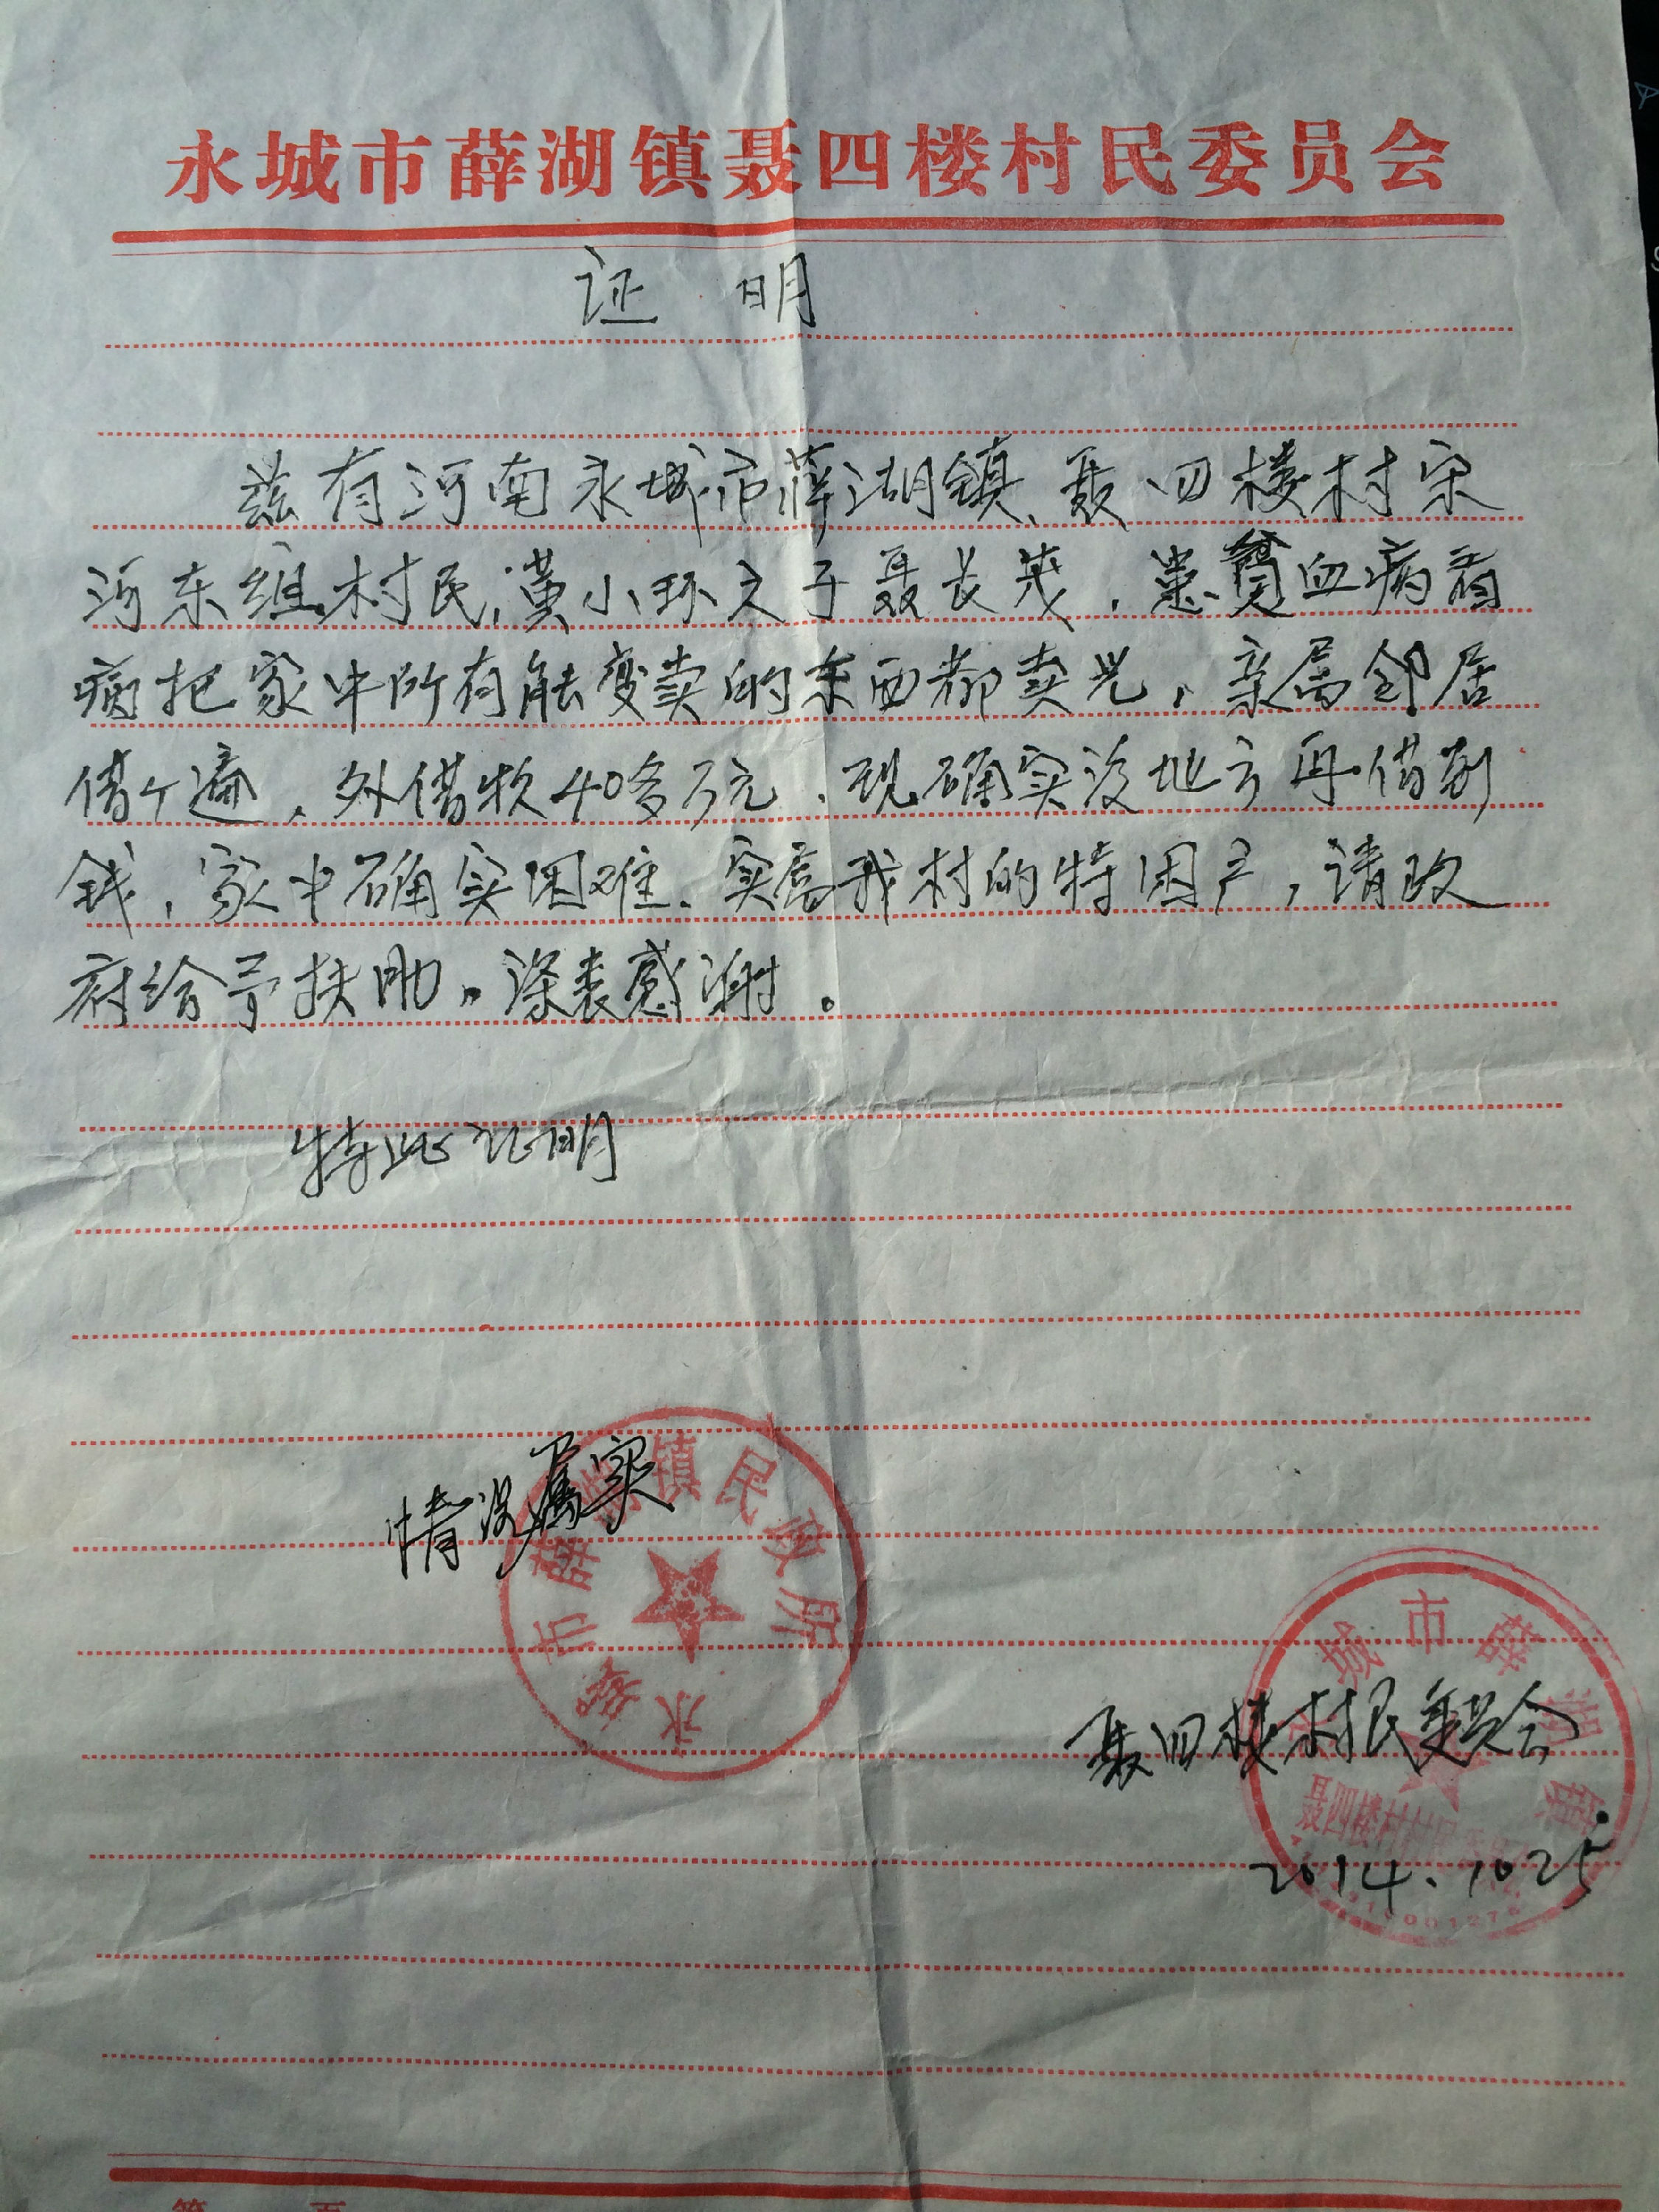 永城市薛湖镇聂四楼村民委员会
证 明
兹有河南永城市薛湖镇、聂四楼村宋
河东组村民,黄小环之子聂长茂,患贫血病看
病把家中所有能变卖的东西都卖光,亲属邻居
借个遍,外借款40多万元,现确实没地方再借到
钱,家中确实困难、实属我村的特困户,请政
府给予扶助。深表感谢。
特此证明
情况属实
永城市薛湖镇民政所
聂四楼村民委员会
城市薛湖镇
聂四楼村村民
2014.10 25
第 页